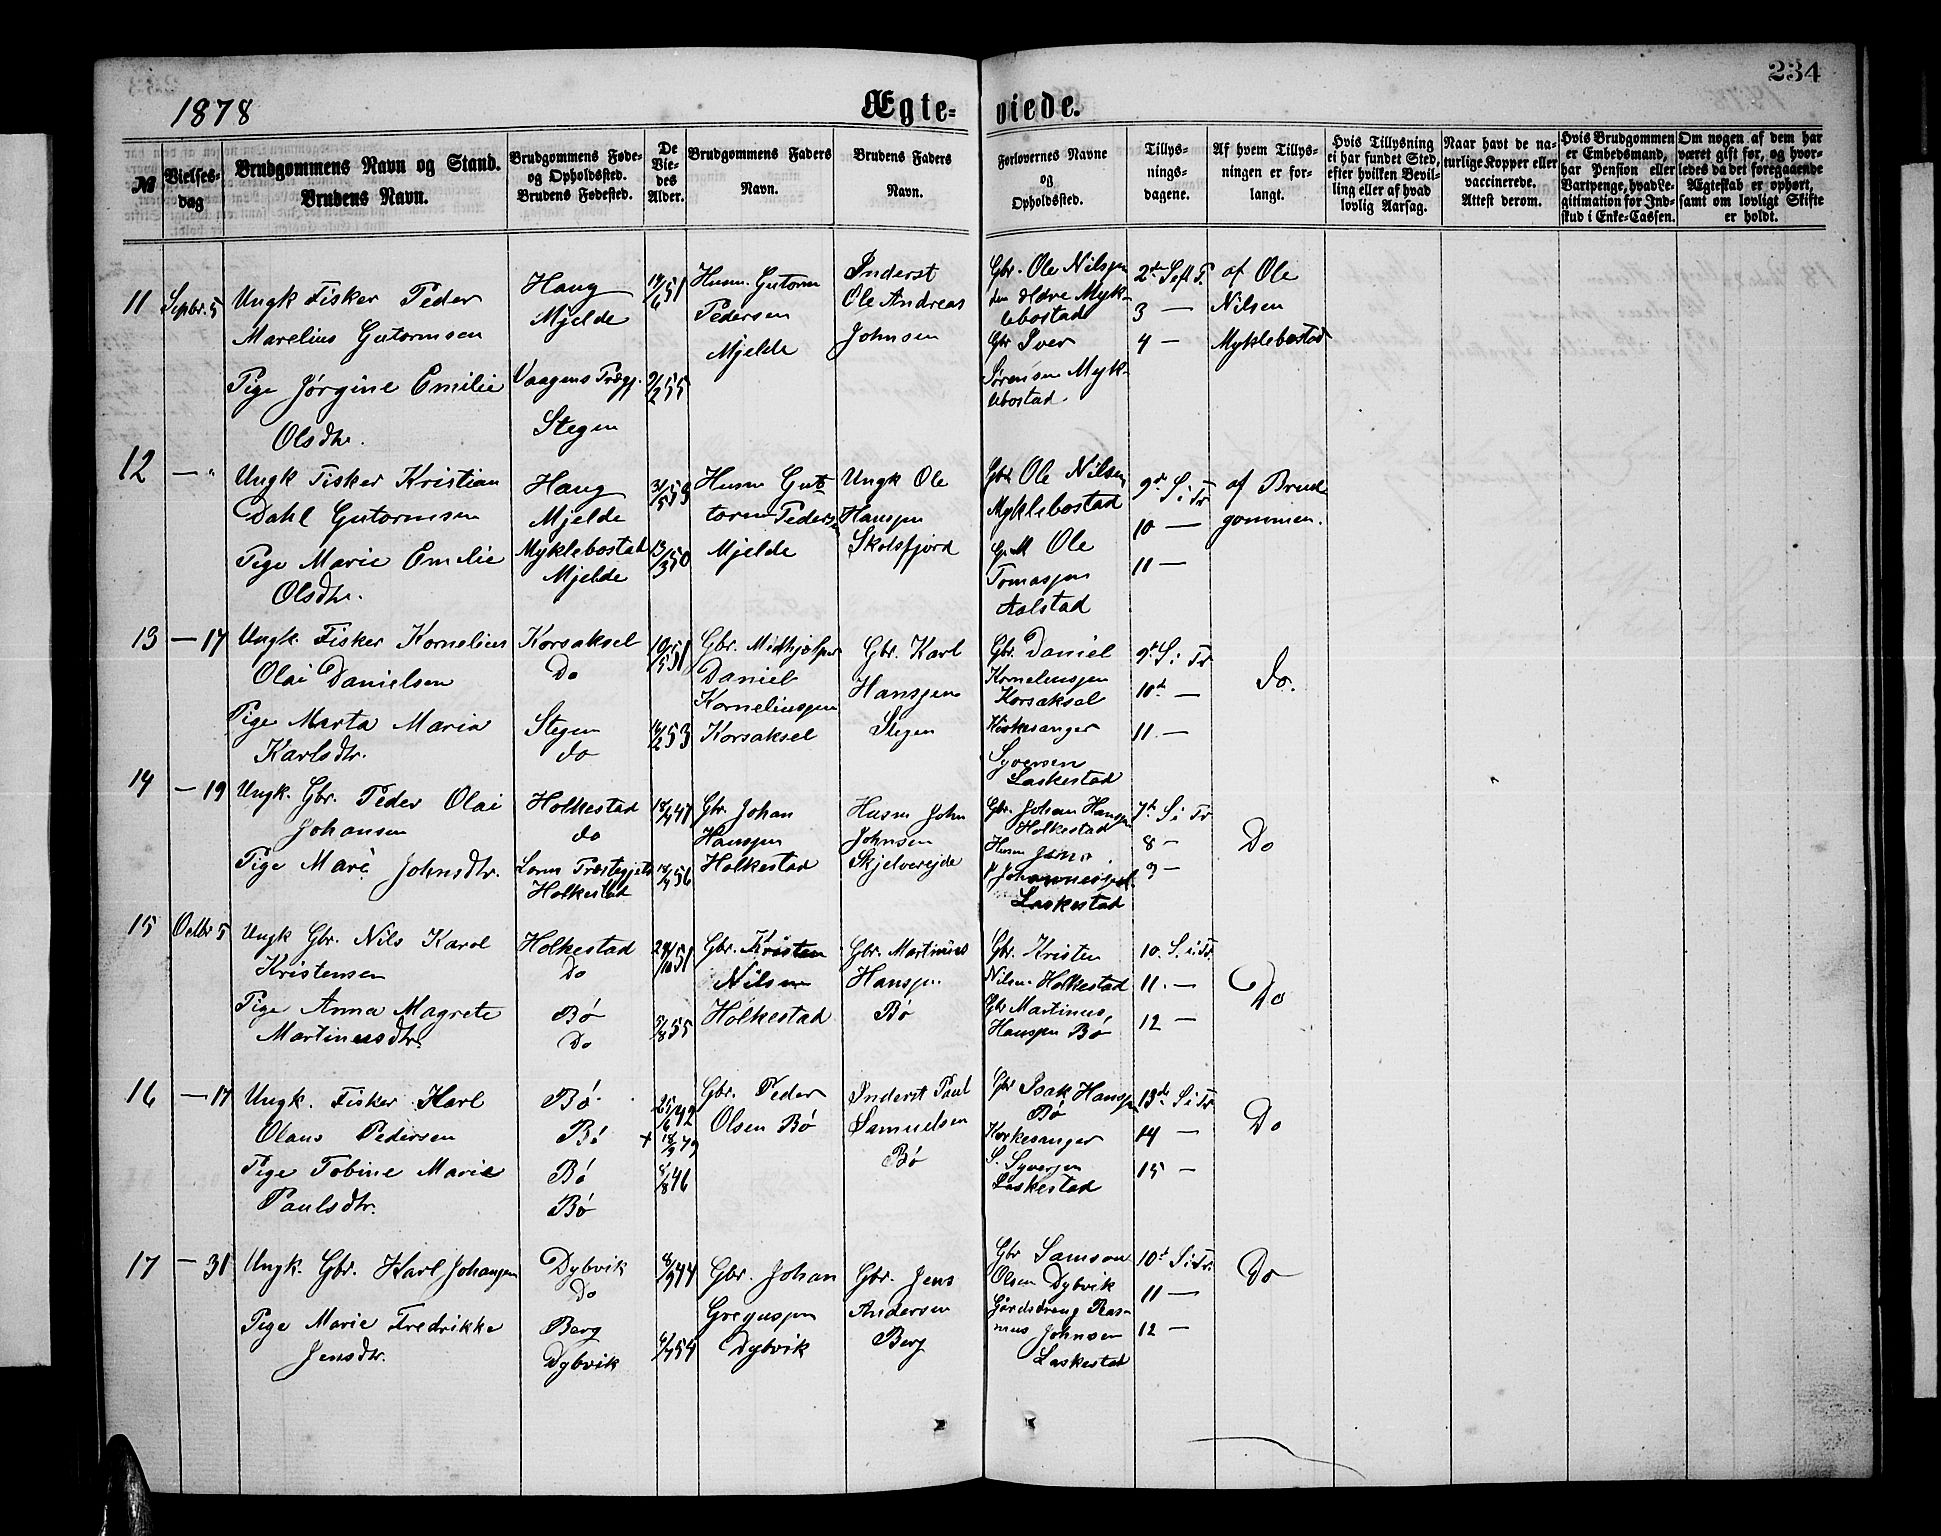 234
1878
Ægte=
viede.
№
Vielses-
dag
Brudgommens Navn og Stand.
Brudens Navn.
Brudgommens Føde-
og Opholdssted.
Brudens Fødested.
De
Vie-
des
Alder.
Brudgommens Faders
Navn.
Brudens Faders
Navn.
Forlovernes Navne
og
Opholdssted.
Tillys-
nings-
dagene.
Af hvem Tillys-
ningen er for-
langt.
Hvis Tillysning
ei har fundet Sted,
efter hvilken Bevil-
ling eller af hvad
lovlig Aarsag.
Naar havt de na-
turlige Kopper eller
vaccinerede.
Attest derom.
Hvis Brudgommen
er Embedsmand,
har Pension eller
Vartpenge, hvad Le-
gitimation for Ind-
skud i Enke-Cassen.
Om nogen af dem har
været gift før, og hvor-
ledes da det foregaaende
Ægteskab er ophørt,
samt om lovligt Skifte
er holdt.
11
Sepbr. 5
Ungk Fisker Peder
Marelius Gutormsen
Pige Jørgine Emilie
Olsdtr.
Haug
Mjelde
Vaagens Prægj.
Stegen
14/6 51
9/2 55
Husm. Gutorm
Pedersen
Mjelde
Inderst
Ole Andreas
Johnsen
Gbr. Ole Nilssen
den ældre Myk-
lebostad
Gbr Iver
Sørensen Myk-
lebostad
2d Seft T.
3 —
4 —
af Ole
Nilsen
Myklebostad
12
— "
Ungk Fisker Kristian
Dahl Gutormsen
Pige Marie Emilie
Olsdtr.
Haug
Mjelde
Myklebostad
Mjelde
31/5 53
13/3 50
Husm Gut-
torm Pedersen
Mjelde
Ungk Ole
Hanssen
Skotsfjord
Gbr Ole Nilsen
Myklebostad
GM Ole
Tomassen
Aalstad
9d S. i Tr
10 —
11 —
af Brud
gommen.
13
— 17
Ungk. Fisker Kornelius
Olai Danielsen
Pige Marta Maria
Karlsdtr.
Korsaksel
Do
Stegen
do
10/5 51
16/2 53
Gbr. Medhjælper
Daniel
Korneliussen
Korsaksel
Gbr. Karl
Hanssen
Stegen
Gbr. Daniel
Korneliussen
Korsaksel
Kirkesanger
Syversen
Laskestad
9d. S i Tr
10d —
11. —
do.
14
— 19
Ungk. Gbr. Peder Olai
Johansen
Pige Mare Johnsdtr.
Holkestad
do
Lorns Præstegjeld
Holkestad
Gbr Johan
Hanssen
Holkestad
Husm John
Johnsen
Skjelvereide
Gbr. Johan Hanssen
Holkestad
Husm
Laskestad
7d. S i Tr
8 —
9 —
Do
15
Octbr 5
Ungk Gbr. Nils Karol
Kristensen
Pige Anna Magrete
Martinusdtr.
Holkestad
Do
Bø
Do
29/10 51
5/8 55
Gbr. Kristen
Nilsen
Holkestad
Gbr. Martinus
Hanssen
Bø
Gbr. Kristen
Nilsen Holkestad
Gbr Martinus,
Hanssen Bø
10. S. i Tr.
11. —
12 —
Do
16
— 17
Ungk. Fisker Karl
Olaus Pedersen
Pige Tobine Marie
Paulsdtr.
Bø
Bø
Bø
Bø
25/6 42
+ 18/9 79
8/8 46
Gbr. Peder
Olsen Bø
Inderst Paul
Samuelsen
Bø
Gbr Isak Hanssen
Bø
Kirkesanger
S. Syversen
Laskestad
13de S i Tr.
14 —
15 —
Do
17
— 31
Ungk. Gbr. Karl Johansen
Pige Marie Fredrikke
Jensdtr.
Dybvik
Do
Berg
Dybvik
8/9 44
6/7 54
Gbr. Johan
Gregussen
Dybvik
Gbr. Jens
Andersen
Berg
Gbr Samson
Olsen Dybvik
Gårdsdreng Ras-
mus Johnsen
Laskestad
10d S i Tr.
11 —
12 —
Do